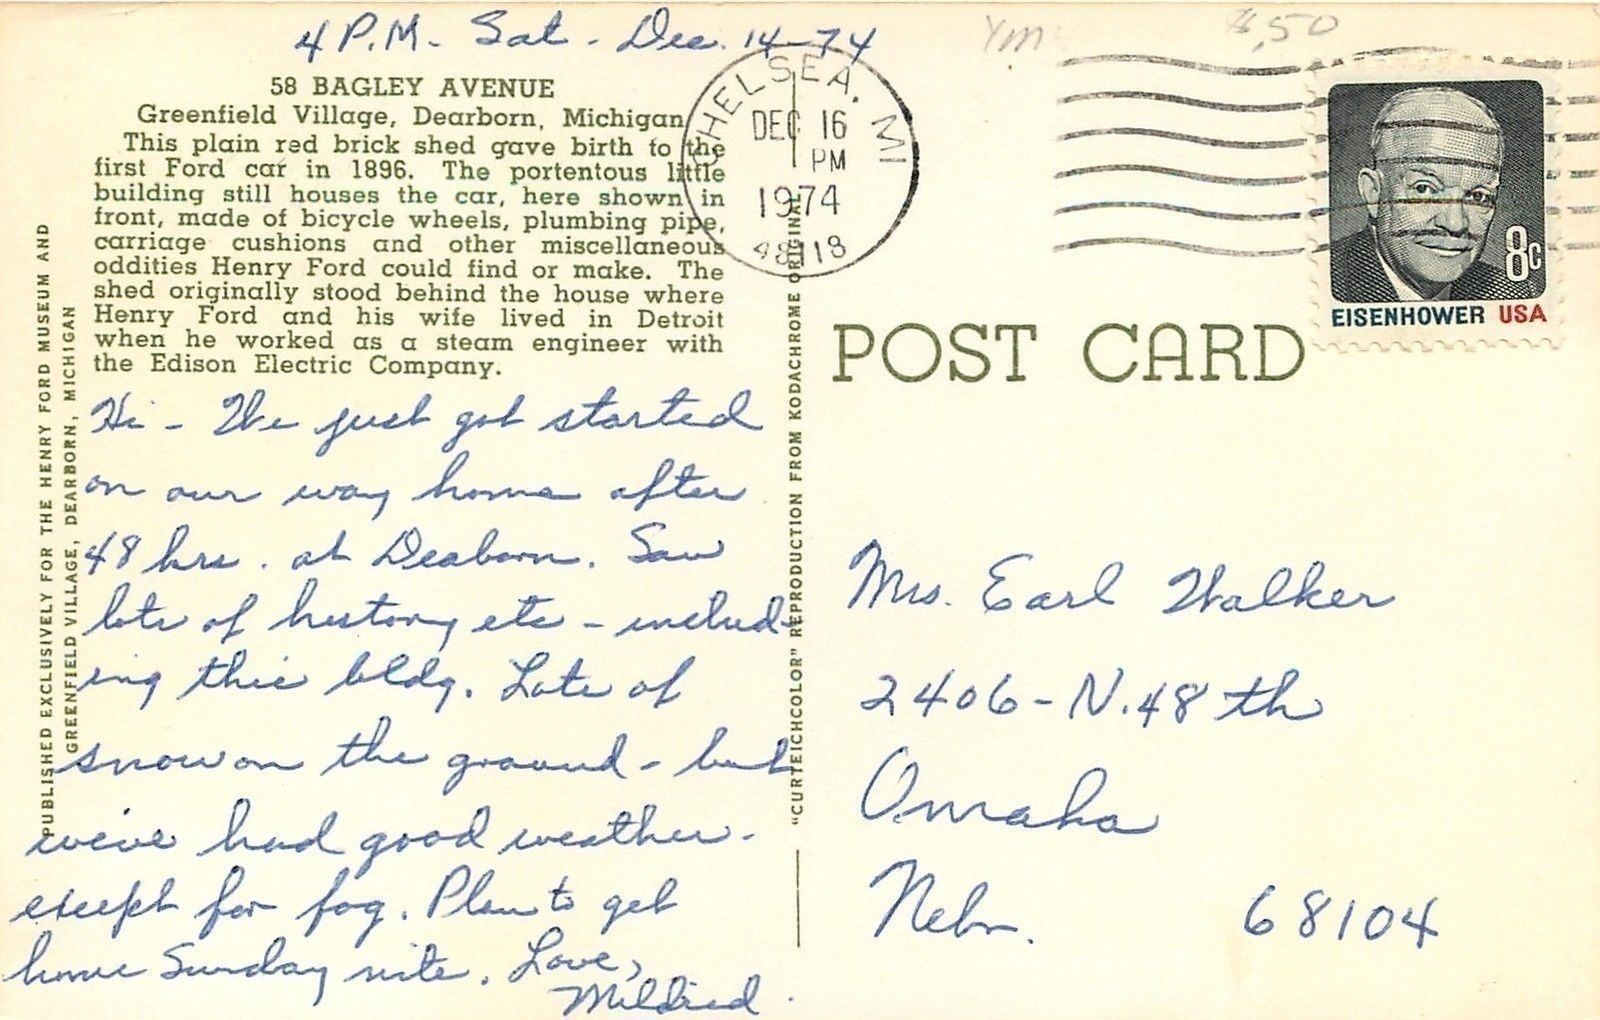 4 P.M. Sat. Dec. 14-74
$.50
58 BAGLEY AVENUE
Greenfield Village, Dearborn, Michigan
This plain red brick shed gave birth to the
first Ford car in 1896. The portentous little
building still houses the car, here shown in
front, made of bicycle wheels, plumbing pipe,
carriage cushions and other miscellaneous
oddities Henry Ford could find or make. The
shed originally stood behind the house where
Henry Ford and his wife lived in Detroit
when he worked as a steam engineer with
the Edison Electric Company.
PUBLISHED EXCLUSIVELY FOR THE HENRY FORD MUSEUM AND
GREENFIELD VILLAGE, DEARBORN, MICHIGAN
Hi - We just got started
on our way home after
48 hrs. at Deaborn. Saw
lots of history etc - includ-
ing this bldg. Lots of
snow on the ground - but
we've had good weather -
except for fog. Plan to get
home Sunday nite. Love,
Mildred.
"CURTEICHCOLOR" REPRODUCTION FROM KODACHROME ORIGINAL
CHELSEA, MI
DEC 16
PM
1974
48118
8c
EISENHOWER USA
POST CARD
Mrs. Earl Walker
2406 - N. 48 th
Omaha
Nebr. 68104